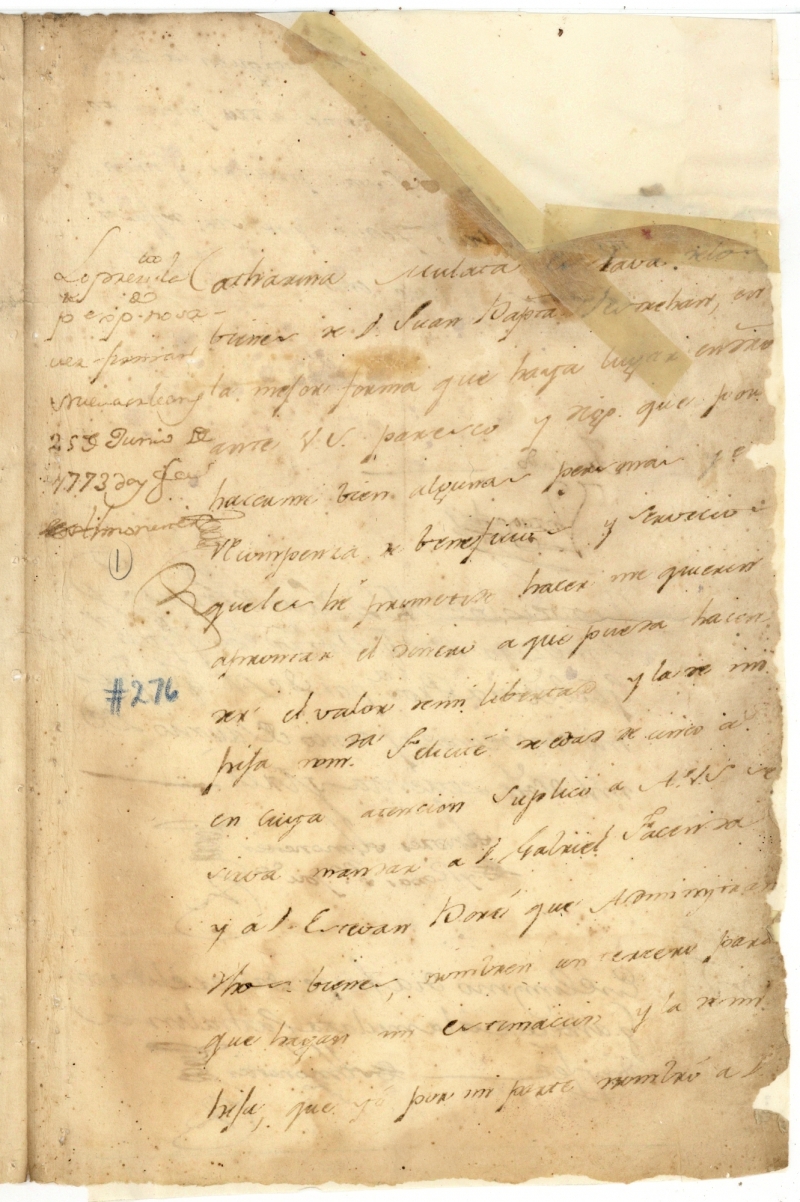 Lo presentado
p.r
Nueva orleans
25 de Junio de
1773 doy fee
Almonester
1
#276
Catharina Mulata Esclava delos
bienes de D. Juan Bap.ta Destrehan, en
la mejor forma que haya lugar en dro
ante V.S. paresco y digo. que por
hacerme bien algunas personas y e
recompensa de beneficios y servicios
queles hé prometido hacer me quieren
aprontar el dinero a que pueda hacen
der el valor demi libertad y la de mi
hija nom.da Felicité de edad de cinco a
en cuya atencion Suplico a V.S. se
sirva mandar a D. Gabriel Facenda
y á D. Estevan Boré que Administran
dhos bienes, nombren un tercero para
que hagan mi estimacion y la de mi
hija, que yo por mi parte nombró a D.